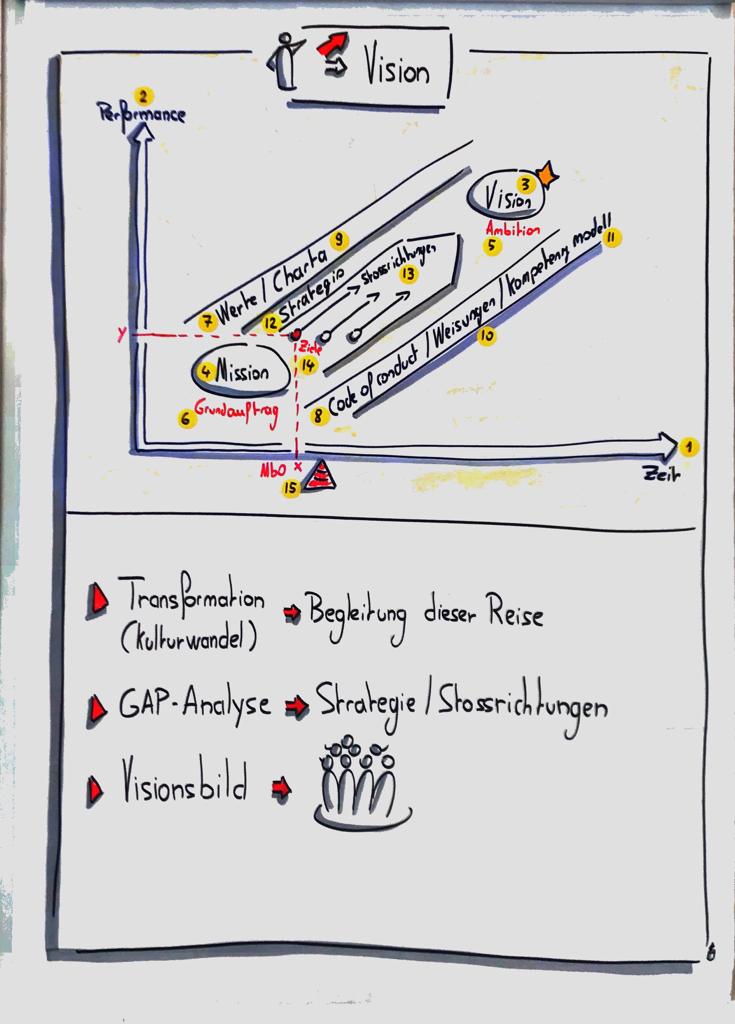 Vision
2
Performance
3
Vision
Ambition
5
9
7 Werte / Charta
12 Strategie
Stossrichtungen
13
11
8 Code of conduct / Weisungen / Kompetenz modell
10
Y
Ziele
14
4 Mission
6 Grundauftrag
1
Zeit
MbO X
15
Transformation
(Kulturwandel)
Begleitung dieser Reise
GAP-Analyse
Strategie / Stossrichtungen
Visionsbild